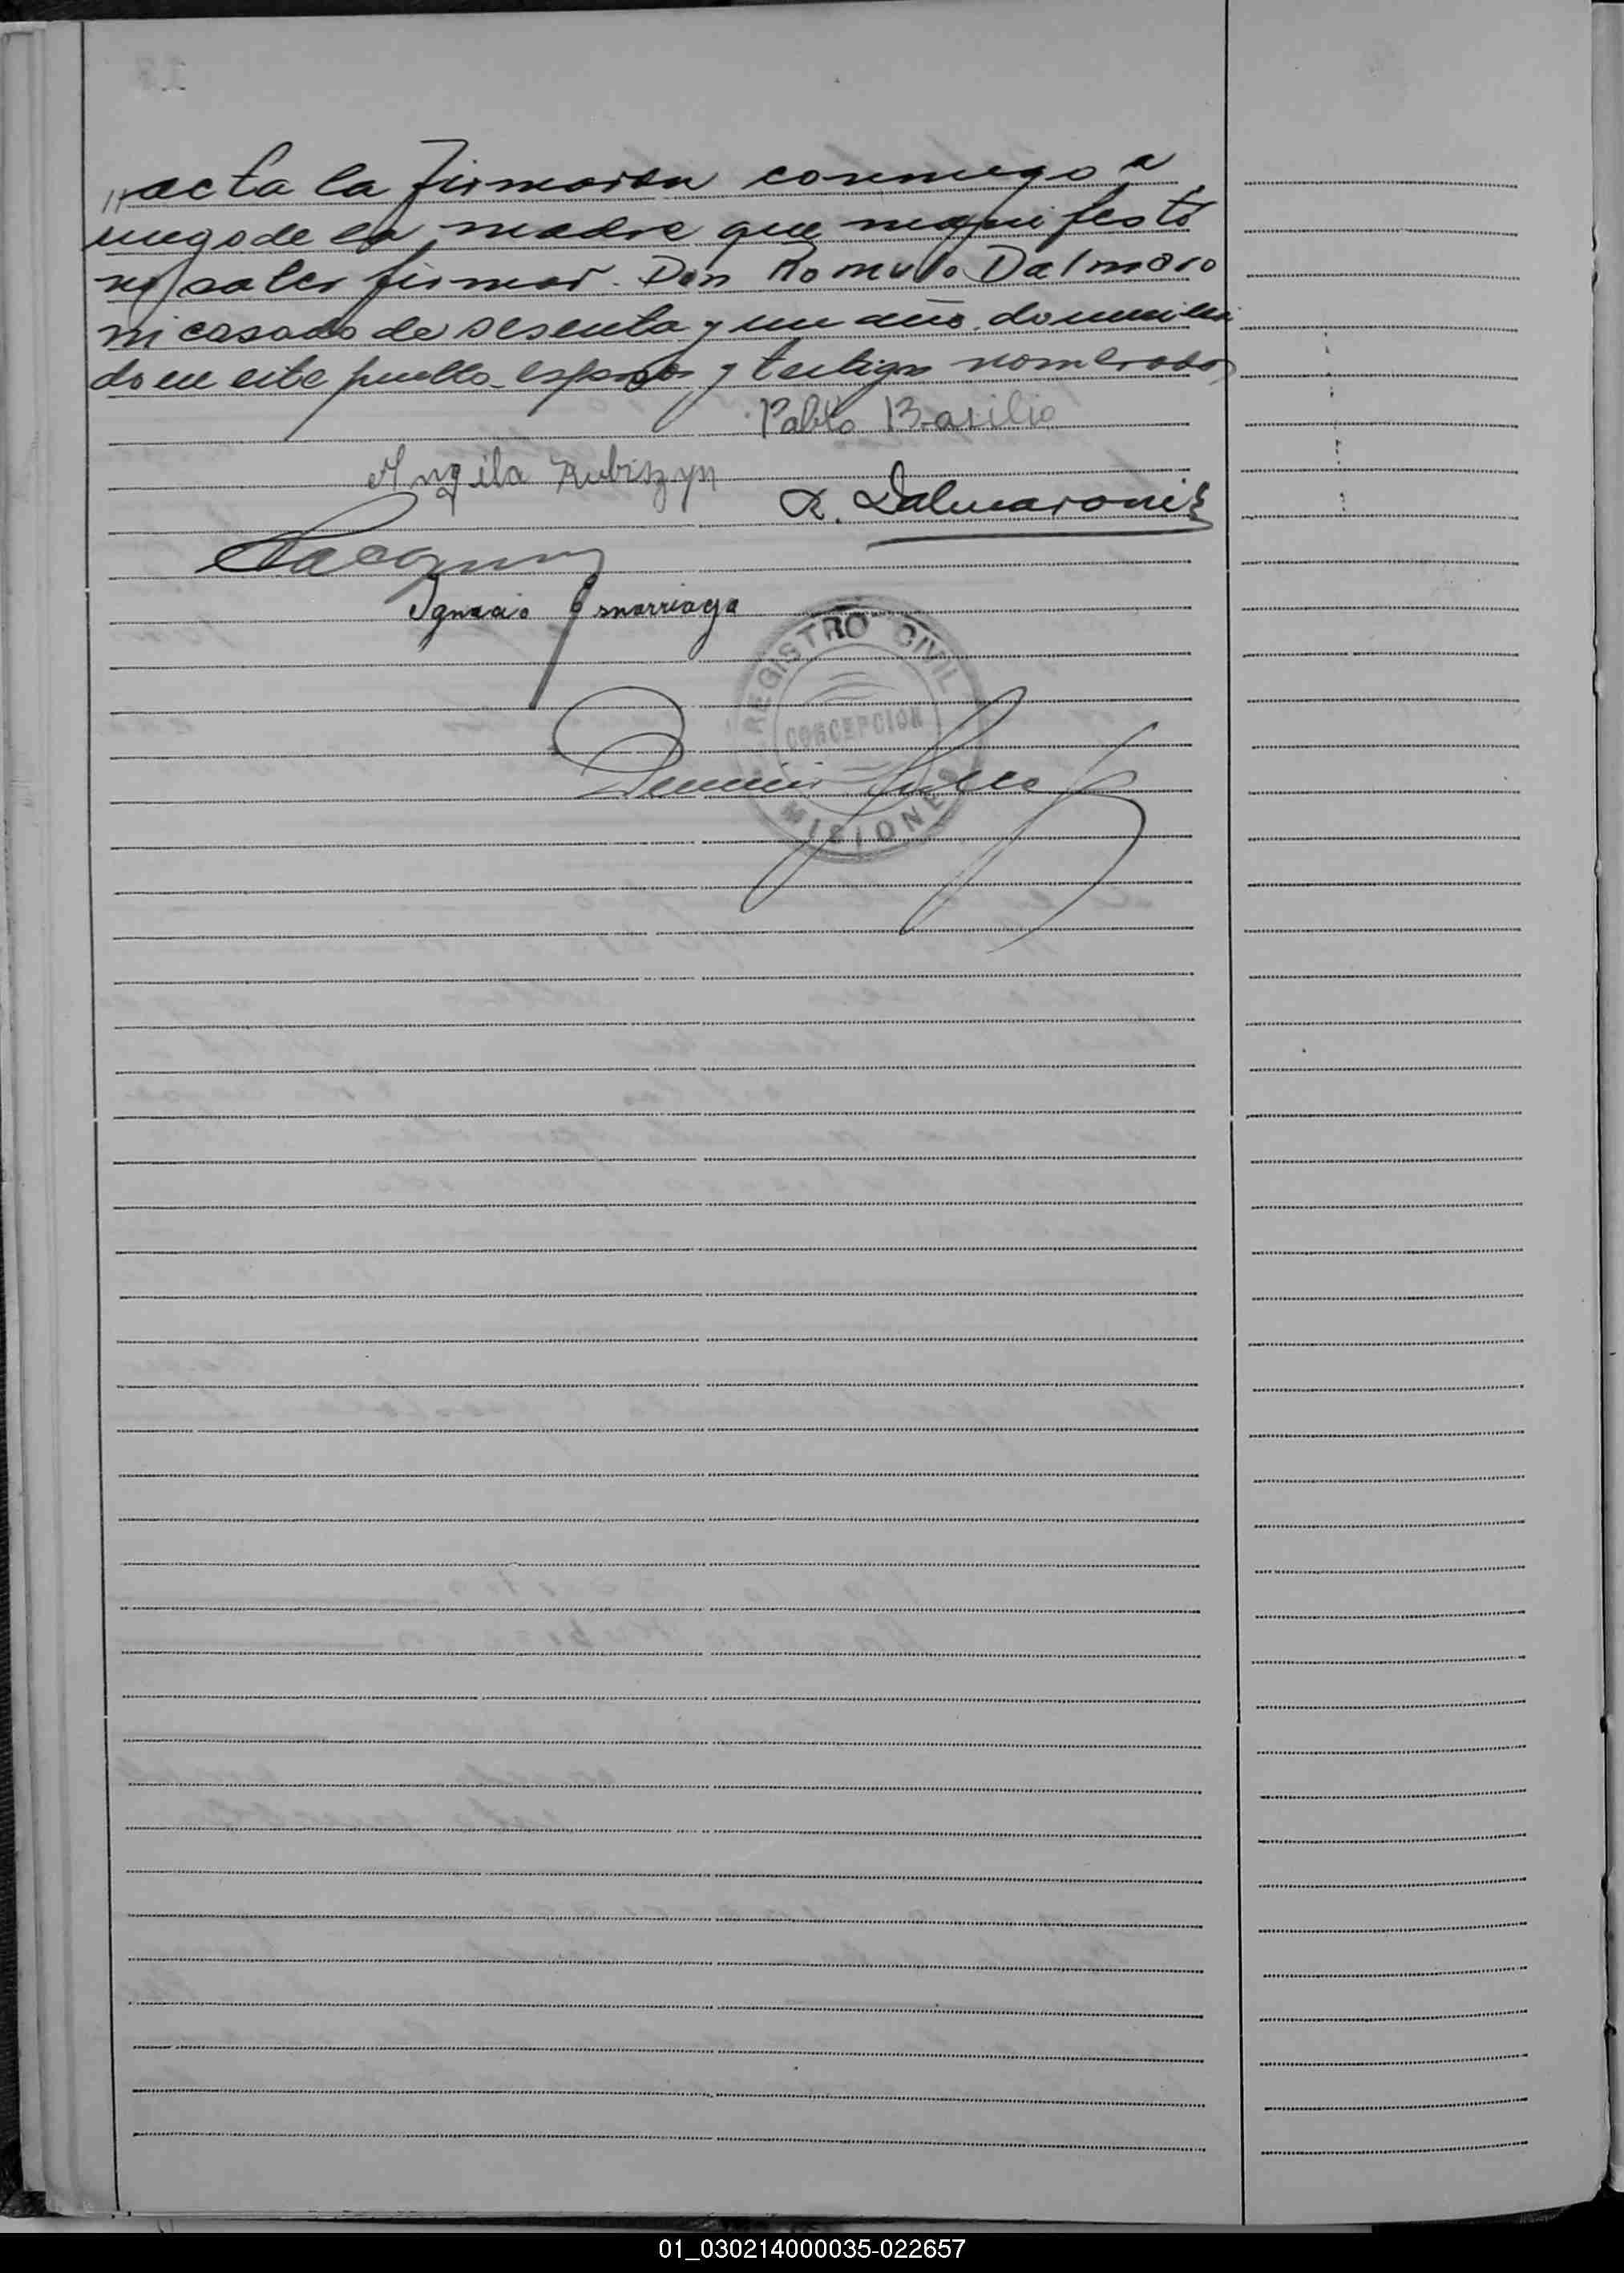 "acta la firmaron conmigo a
ruego de la madre que manifestó
no saber firmar. Don Romulo Dalmaro
ni casado de sesenta y un año. domicilia
do en este pueblo esposos y testigos nombrados
Pablo Basilio
Angila Kubiszyn
R. Dalmaroni
Ignacio Ysnarriaga
REGISTRO CIVIL
CONCEPCION
MISIONES
01_030214000035-022657